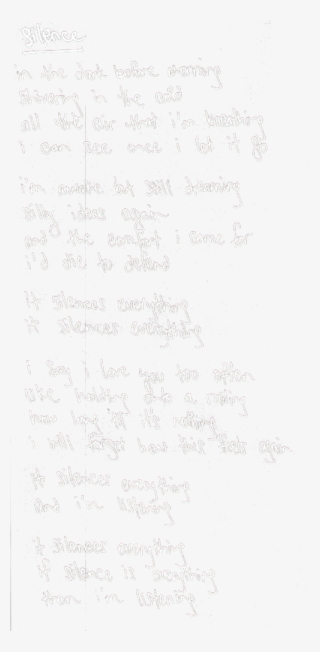 silence
in the dark before morning
shivering in the cold
all the air that i'm breathing
i can see once i let it go
i'm awake but still dreaming
silly ideas again
and the comfort i came for
i'd die to defend
it silences everything
it silences everything
i say i love you too often
like holding onto a
how long it's nothing
i will forget how this feels again
it silences everything
and i'm listening
if silences everything
if silence is everything
then i'm listening